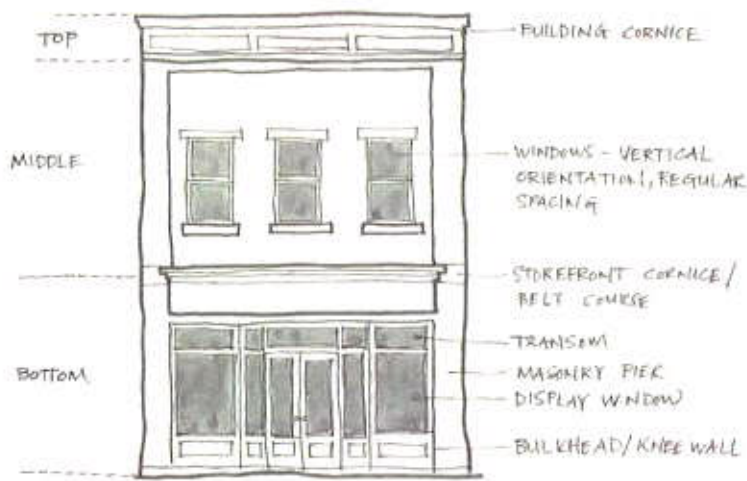 TOP
BUILDING CORNICE
MIDDLE
WINDOWS - VERTICAL
ORIENTATION, REGULAR
SPACING
STOREFRONT CORNICE/
BELT COURSE
TRANSOM
BOTTOM
MASONRY PIER
DISPLAY WINDOW
BULKHEAD/KNEE WALL